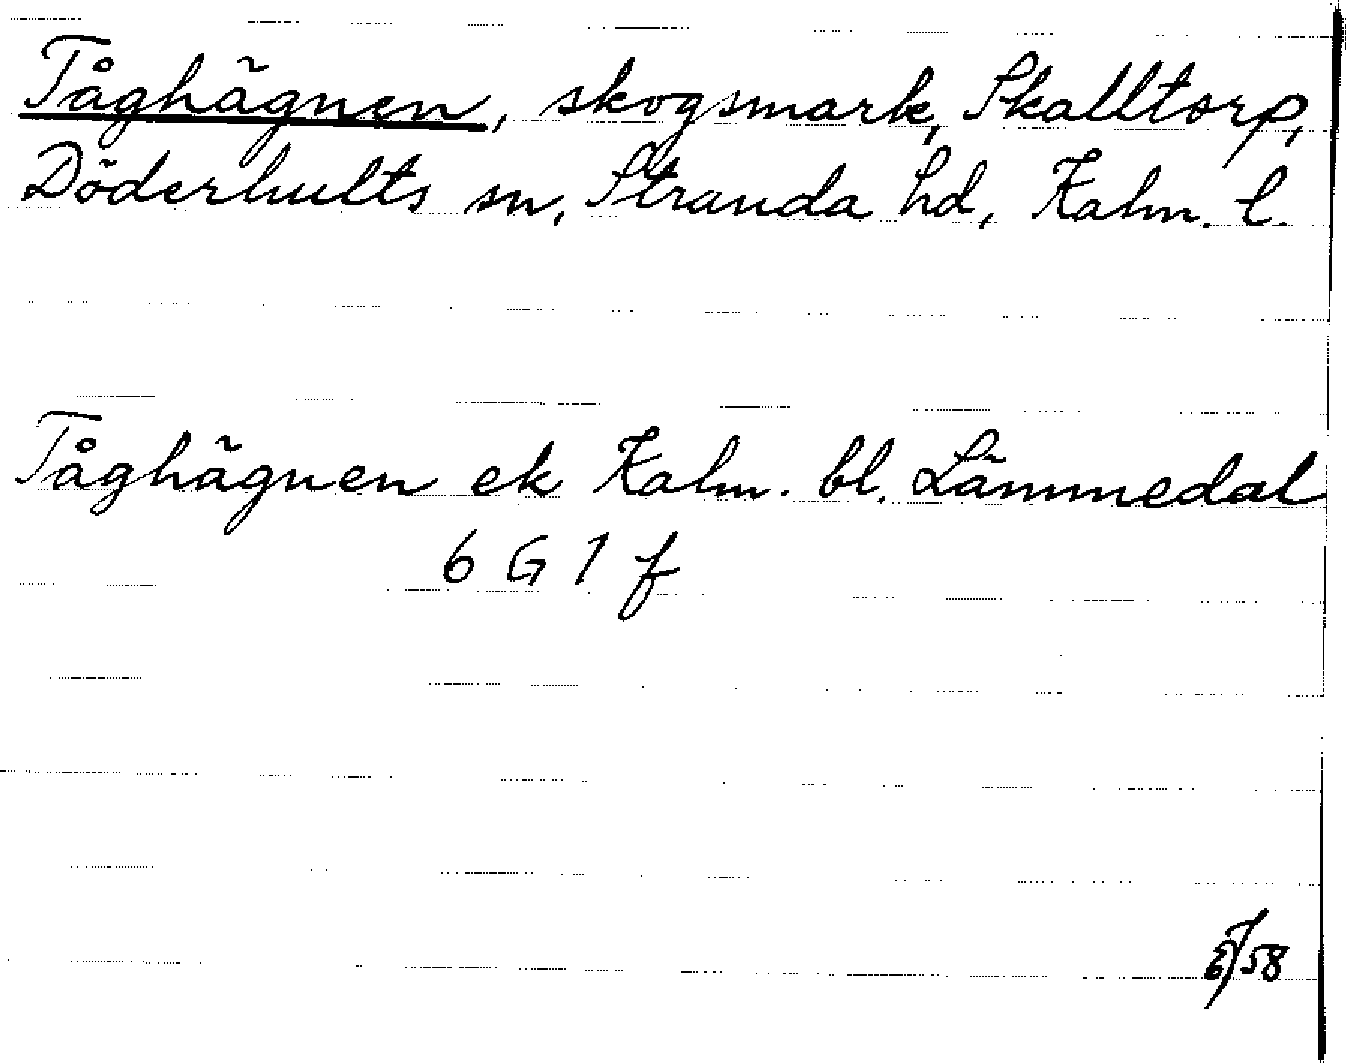 Tåghägnen, skogsmark, Skalltorp,
Döderhults sn, Stranda hd, Kalm. l.
Tåghägnen ek Kalm. bl. Lämmedal
6 G 1 f
/58